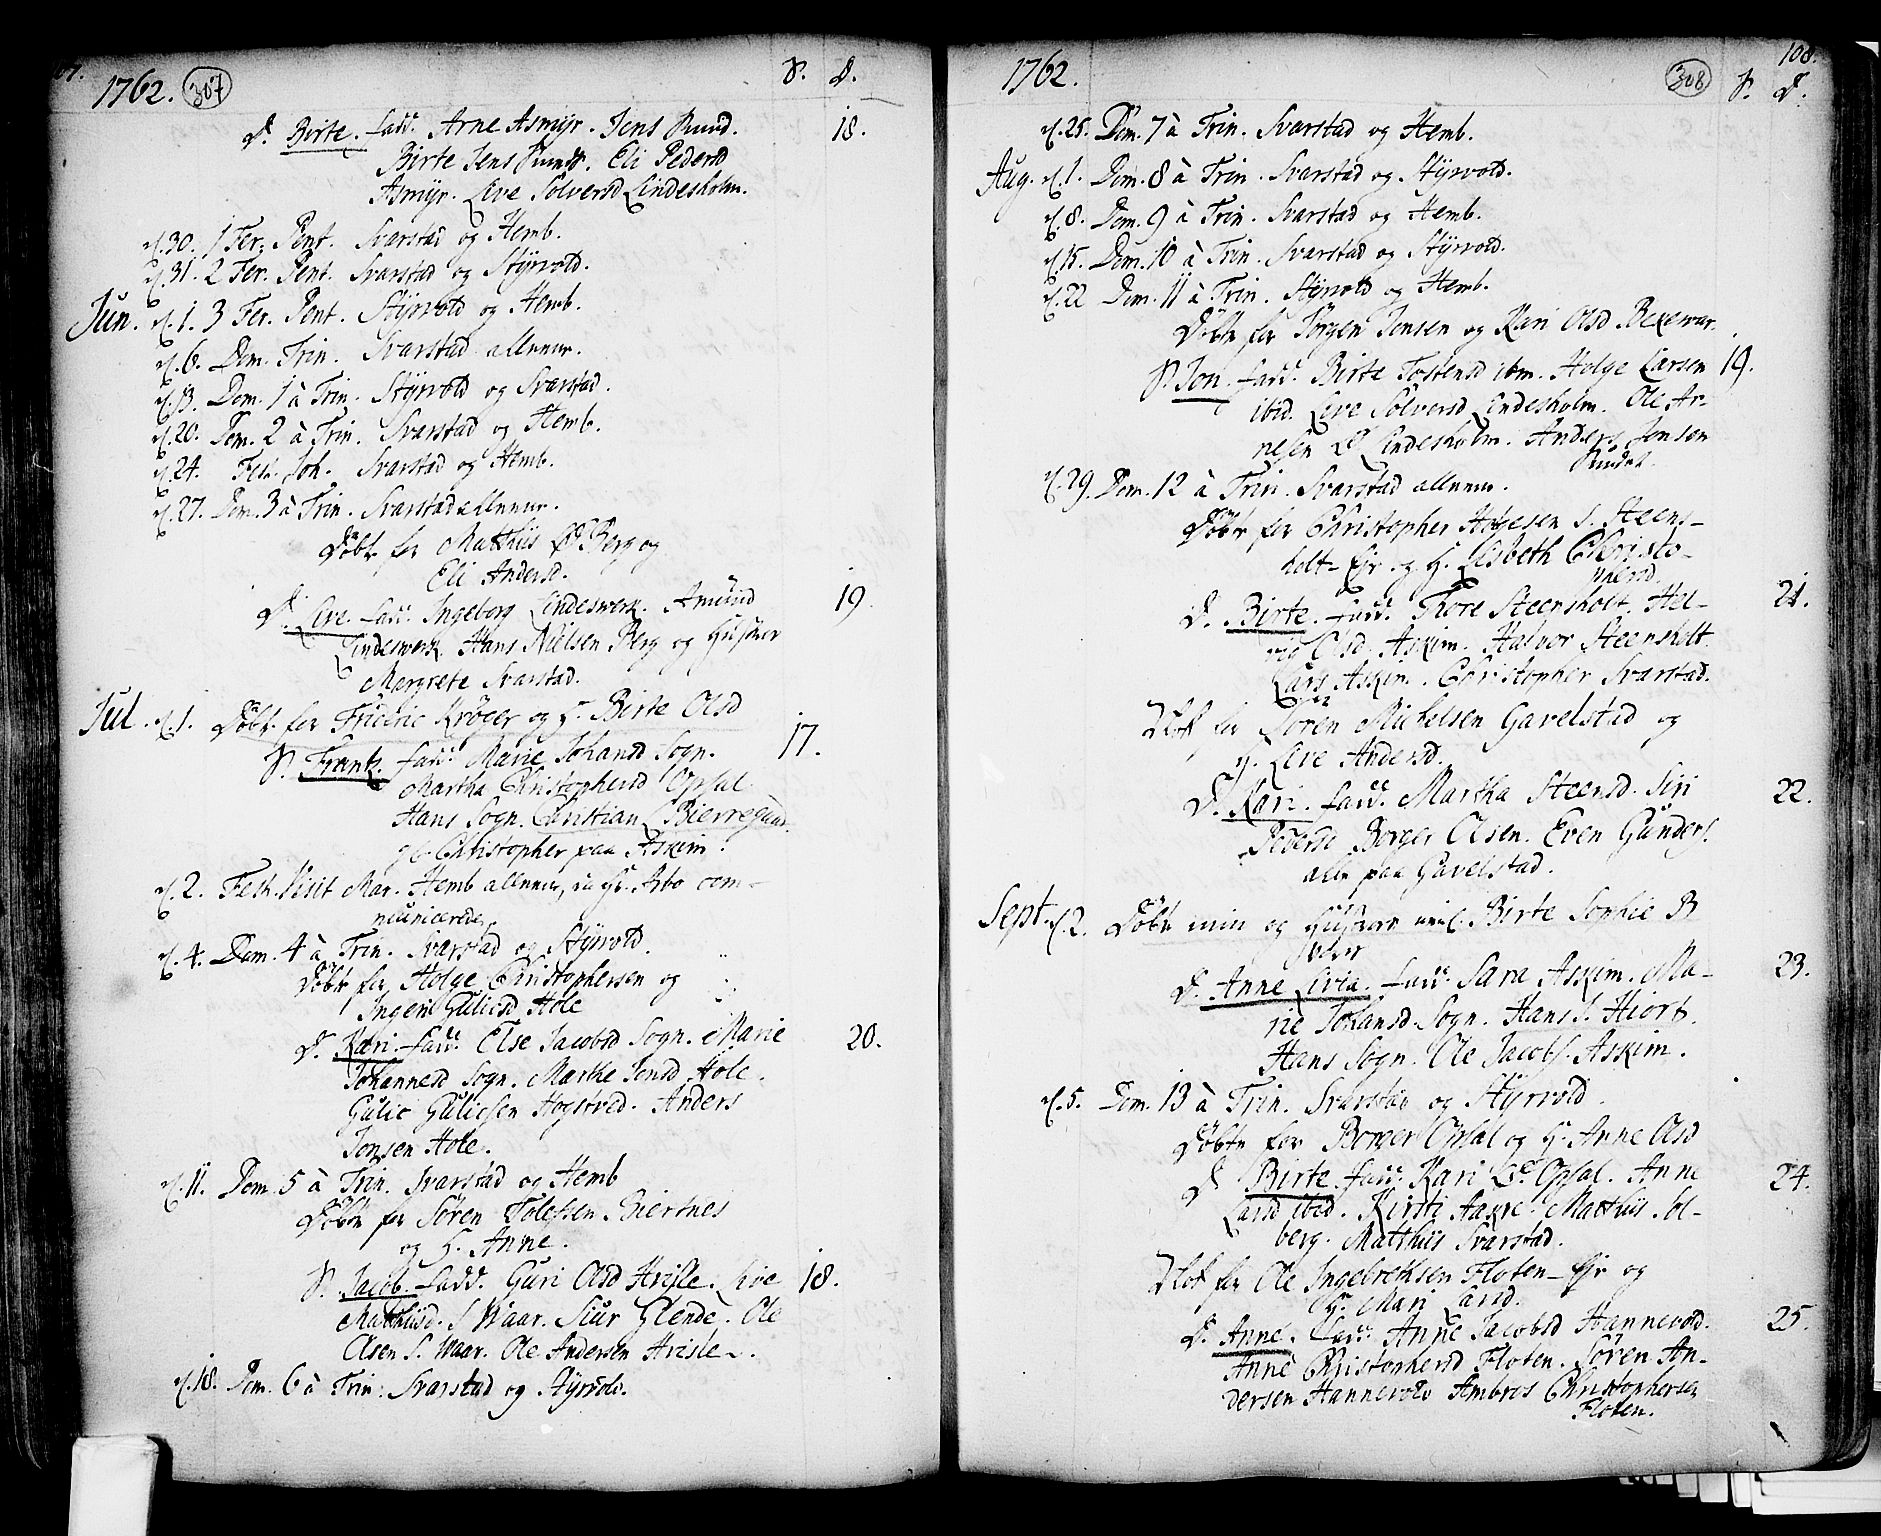 107.
1762. 307 S. D.
D. Birte. fadd. Arne Asmyr. Jens Rund. 18.
Birte Jens Rund. Eli Pedersd
Asmyr. Live Sólversd Lindesholm.
d. 30. 1 Fer. Pent. Svarstad og Hemb.
d. 31. 2 Fer. Pent. Svarstad og Styrvold.
Jun. d. 1. 3 Fer. Pent. Styrvold og Hemb.
d. 6. Dom. Trin. Svarstad allene.
d. 13. Dom. 1 à Trin. Styrvold og Svarstad.
d. 20. Dom. 2 à Trin. Svarstad og Hemb.
d. 24. Fest. Joh. Svarstad og Hemb.
d. 27. Dom. 3 à Trin. Svarstad allene.
Döbt for Matthiis Berg og
Eli Andersd.
D. Live. fadd. Ingeborg Lindeswerk. Amund 19.
Lindeswerk. Hans Nielsen Berg og Hustrue
Margrete Svarstad.
Jul. d. 1. Döbt for Frideric Kröger og H. Birte Olsd
S. Frantz. fadd. Marie Johansd Sogn. 17.
Martha Christophersd Opsal
Hans Sogn. Christian Bierregaard.
og Christopher paa Askim.
d. 2. Fest. Visit. Mar. Hemb allene, da Hr. Arbo com-
municerede
d. 4. Dom. 4 à Trin. Svarstad og Styrvold.
Döbt for Holge Christophersen og
Ingeri Gulicsd Hole
D. Kari. fadd. Else Jacobsd Sogn. Marie 20.
Johannesd Sogn. Marthe Jensd Hole.
Gulic Gulicsen Hogstved. Anders
Jonsen Hole.
d. 11. Dom. 5 à Trin. Svarstad og Hemb
Döbt for Sören Tolefsen Biertnes
og H. Anne.
S. Jacob. fadd. Guri Olsd Hvisle. Live 18.
Matthiisd. S. Waar. Siur Glende. Ole
Olsen S. Waar. Ole Andersen Hvisle.
d. 18. Dom. 6 à Trin. Svarstad og Styrvold.
108.
1762. 308 S. D.
d. 25. Dom. 7 à Trin. Svarstad og Hemb.
Aug. d. 1. Dom. 8 à Trin. Svarstad og Styrvold.
d. 8. Dom. 9 à Trin. Svarstad og Hemb.
d. 15. Dom. 10 à Trin. Svarstad og Styrvold.
d. 22 Dom. 11 à Trin. Styrvold og Hemb.
Döbt for Jörgen Jensen og Kari Olsd Bexewar.
S. Jon. fadd. Birte Tostensd ibm. Holge Larsen 19.
ibid. Live Sölversd Lindesholm. Ole Ar-
nesen Lindesholm. Anders Jonsen
Rundal.
d. 29. Dom. 12 à Trin. Svarstad allene.
Döbt for Christopher Holgesen S. Steens-
holt-Ejr. og H. Lisbeth Christo-
phersd.
D. Birte. fadd. Thore Steensholt. Hel- 21.
vig Olsd Askim. Halvor Steensholt
Lars Askim. Christopher Svarstad.
Item for Sören Michelsen Gavelstad og
H. Live Andersd.
D. Kari. fadd. Martha Steensd. Siri 22.
Pedersd Borger Olsen. Even Gunders.
alle paa Gavelstad.
Sept. d. 2. Döbt min og Hustrue Birte Sophie B
D. Anne Livia. fadd. Sara Askim. Ma- 23.
rie Johansd. Sogn. Hans S. Hiort.
Hans Sogn. Ole Jacobs. Askim.
d. 5. Dom. 13 à Trin. Svarstad og Styrvold.
Döbt for Borger Opsal og H. Anne Olsd
D. Birte fadd. Kari Opsal. Anne 24.
Larsd ibid. Kirsti Aanne. Matthiis Sol-
berg. Matthiis Svarstad.
Item for Ole Ingebretsen Floten-Ejr og
H. Mari Larsd.
D. Anne. fadd. Anne Jacobsd Hannevold. 25.
Anne Christophersd Floten. Sören An-
dersen Hannevold Ambros Christophersen
Floten.